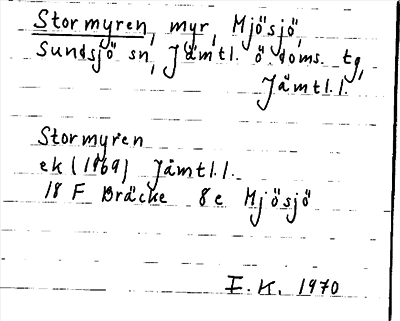 Stormyren, myr, Mjösjö,
Sundsjö sn, Jämtl. ö. doms. tg,
Jämtl.l.
Stormyren
ek (1969) Jämtl.l.
18 F Bräcke 8e Mjösjö
I.K. 1970